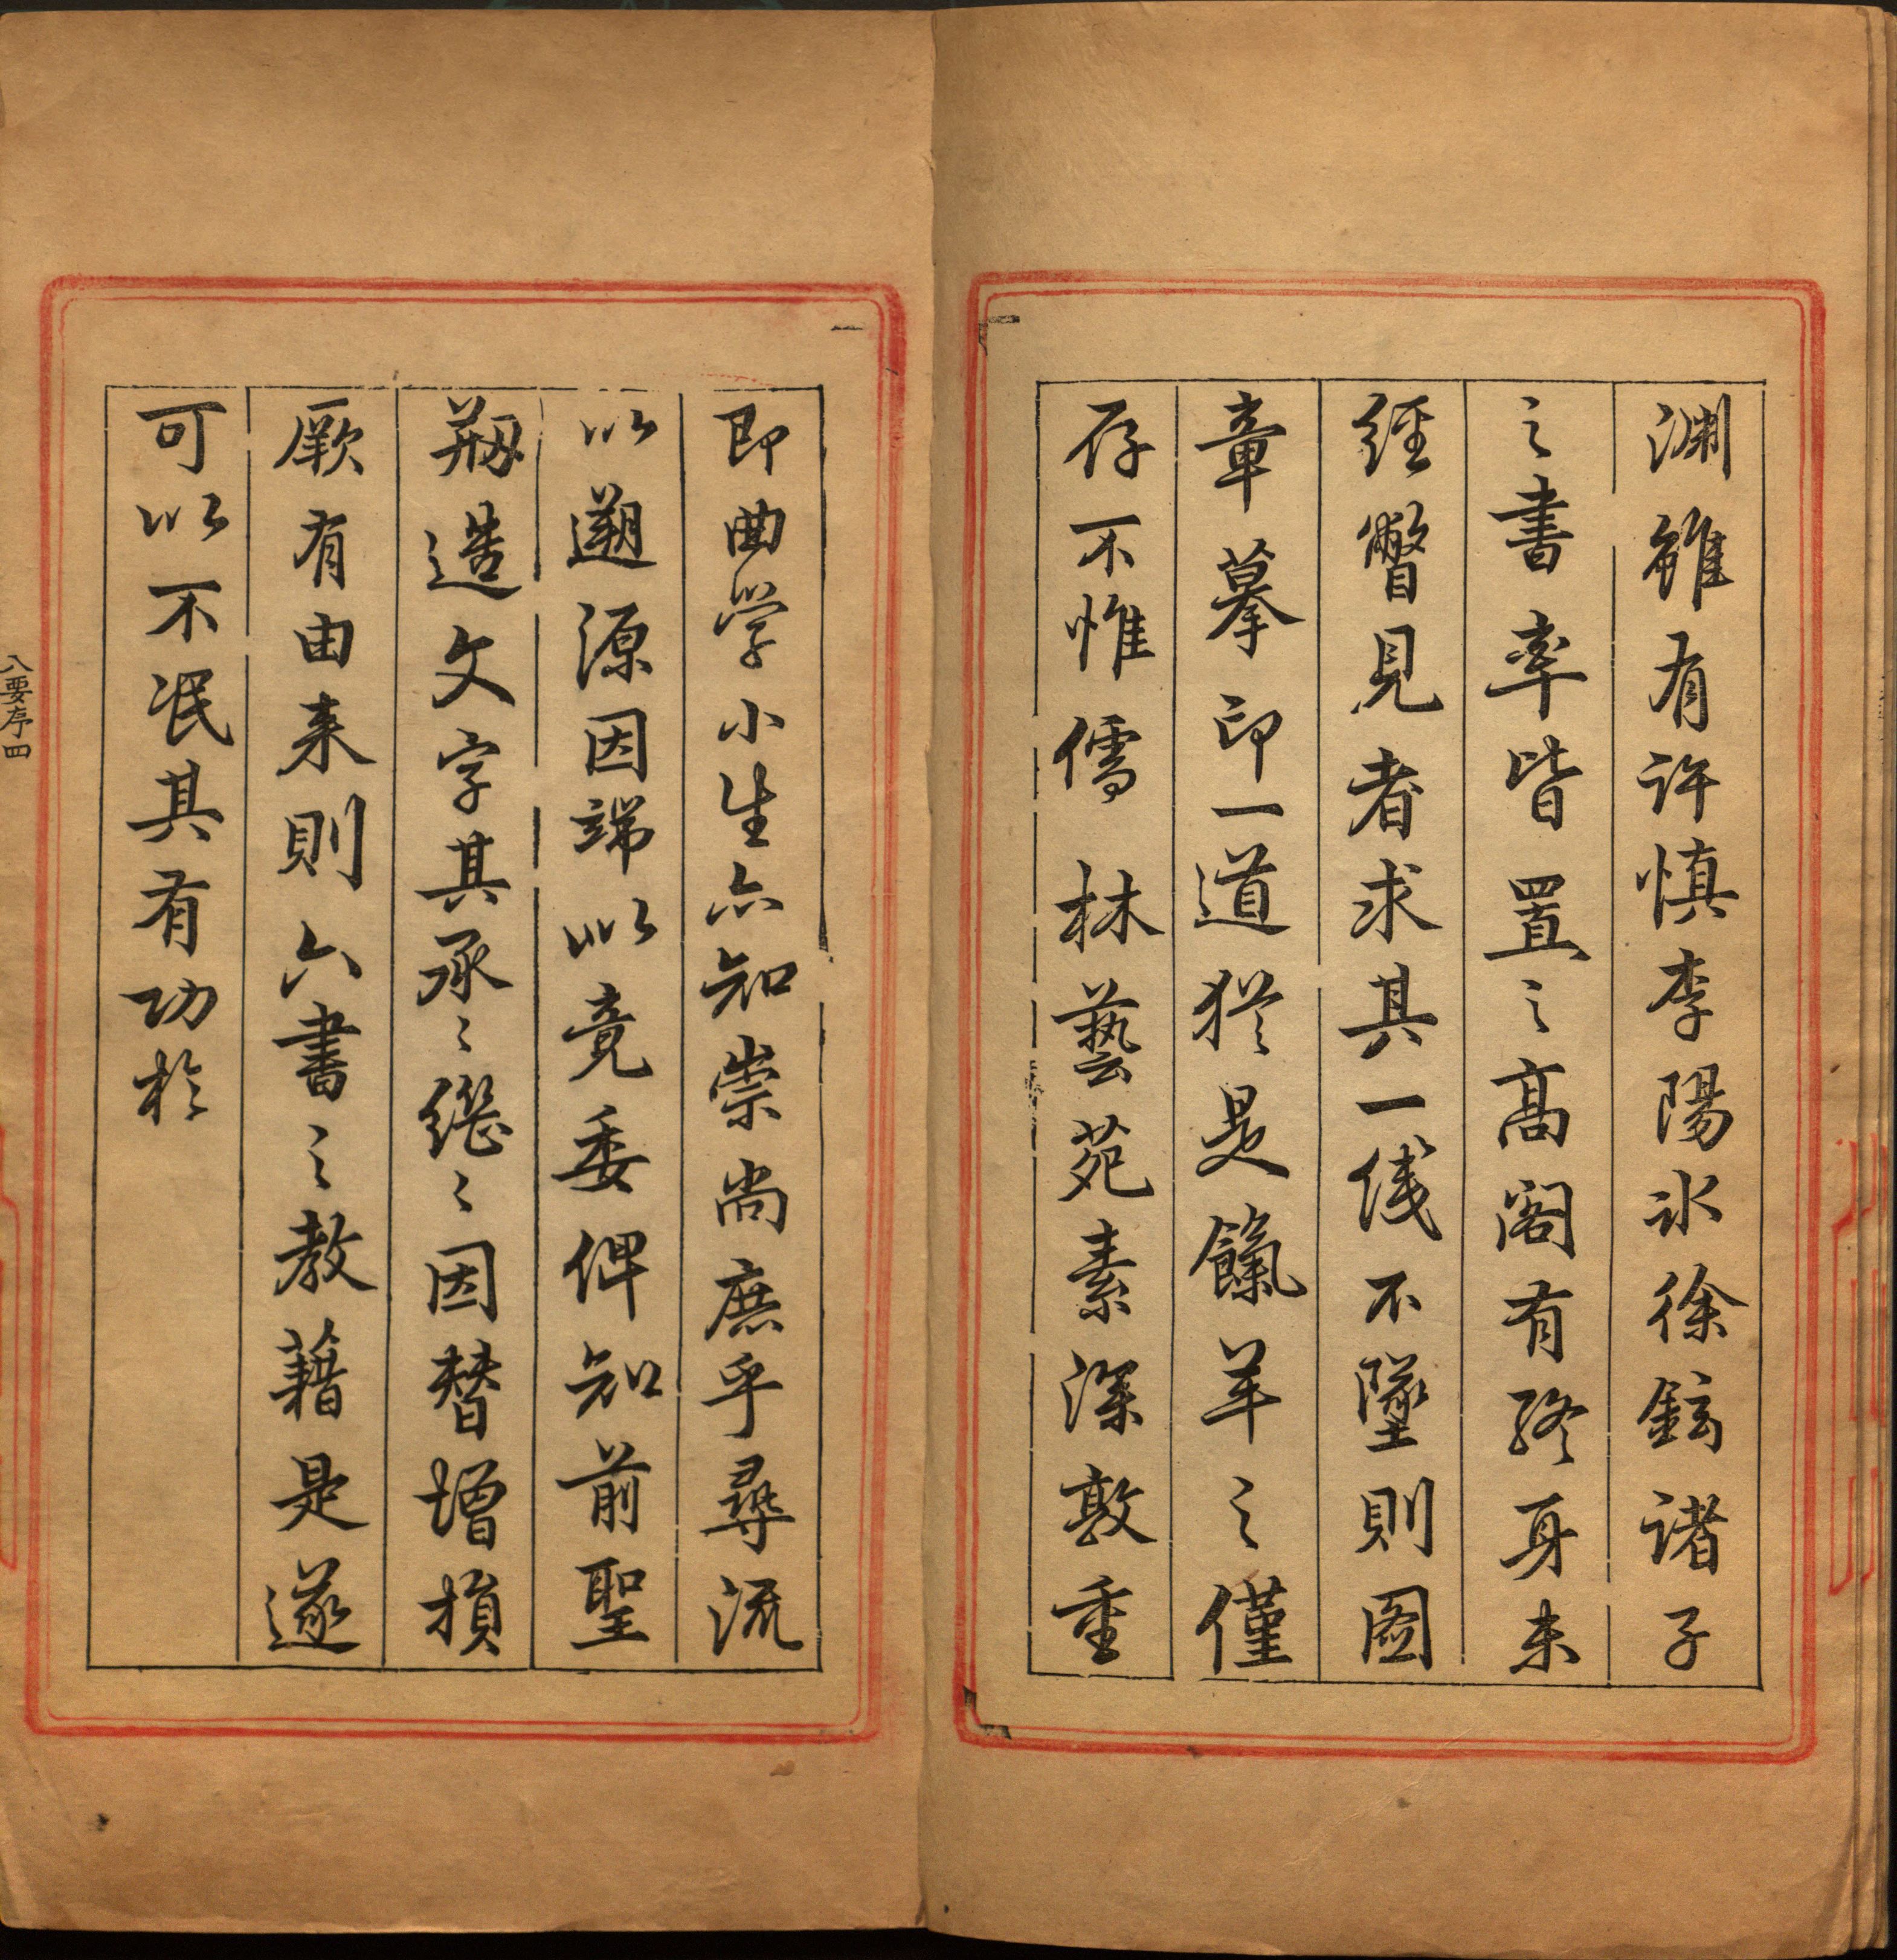 淵雖有許慎李陽氷徐鉉諸子
之書率皆置之高閣有終身未
經瞥見者求其一綫不墜則圖
章摹印一道猶是餼羊之僅
存不惟儒林藝苑素深敦重
即曲学小生亦知崇尚庶乎尋流
以遡源因端以竟委俾知前聖
剏造文字其承〻繼〻因替增損
厥有由来則六書之教藉是遂
可以不泯其有功於
八要序四